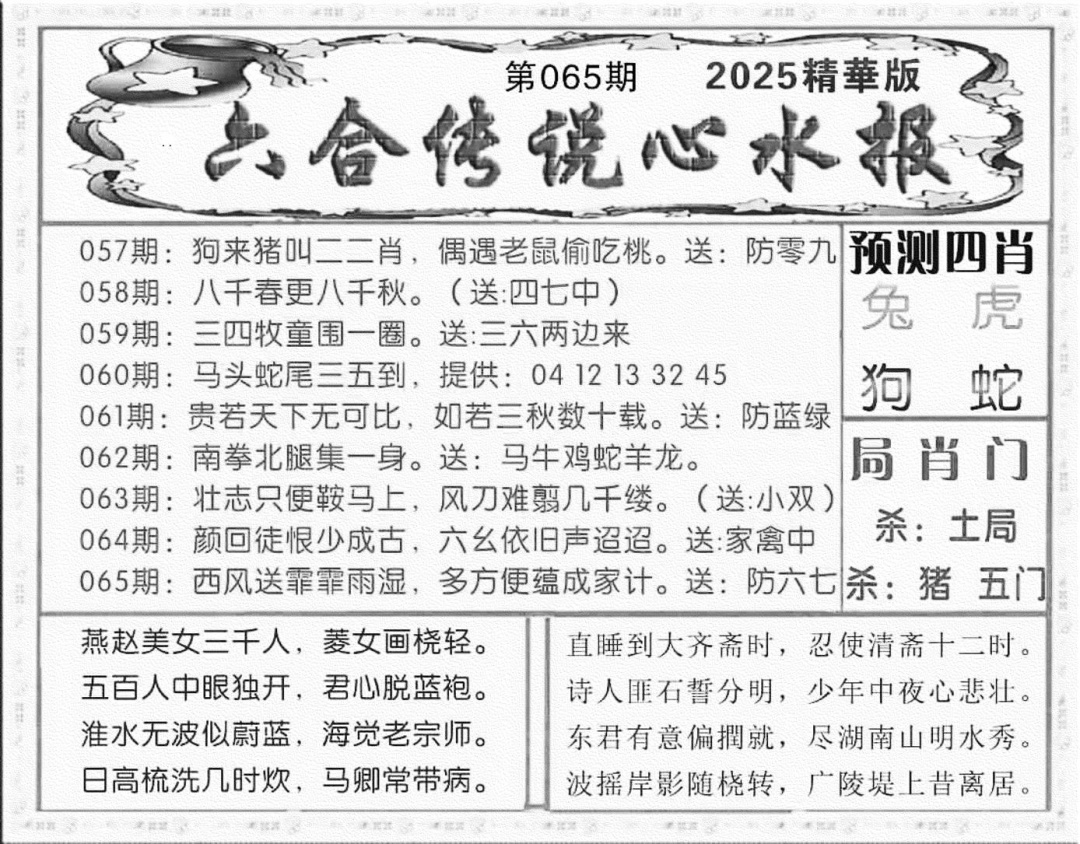 第065期 2025精華版
六合传说心水报
057期：狗来猪叫二二肖，偶遇老鼠偷吃桃。送：防零九
058期：八千春更八千秋。（送:四七中）
059期：三四牧童围一圈。送:三六两边来
060期：马头蛇尾三五到，提供：04 12 13 32 45
061期：贵若天下无可比，如若三秋数十载。送：防蓝绿
062期：南拳北腿集一身。送：马牛鸡蛇羊龙。
063期：壮志只便鞍马上，风刀难翦几千缕。（送:小双）
064期：颜回徒恨少成古，六幺依旧声迢迢。送:家禽中
065期：西风送霏霏雨湿，多方便蕴成家计。送：防六七
预测四肖
兔 虎
狗 蛇
局肖门
杀：土局
杀：猪 五门
燕赵美女三千人，菱女画桡轻。
五百人中眼独开，君心脱蓝袍。
淮水无波似蔚蓝，海觉老宗师。
日高梳洗几时炊，马卿常带病。
直睡到大齐斋时，忍使清斋十二时。
诗人匪石誓分明，少年中夜心悲壮。
东君有意偏撋就，尽湖南山明水秀。
波摇岸影随桡转，广陵堤上昔离居。